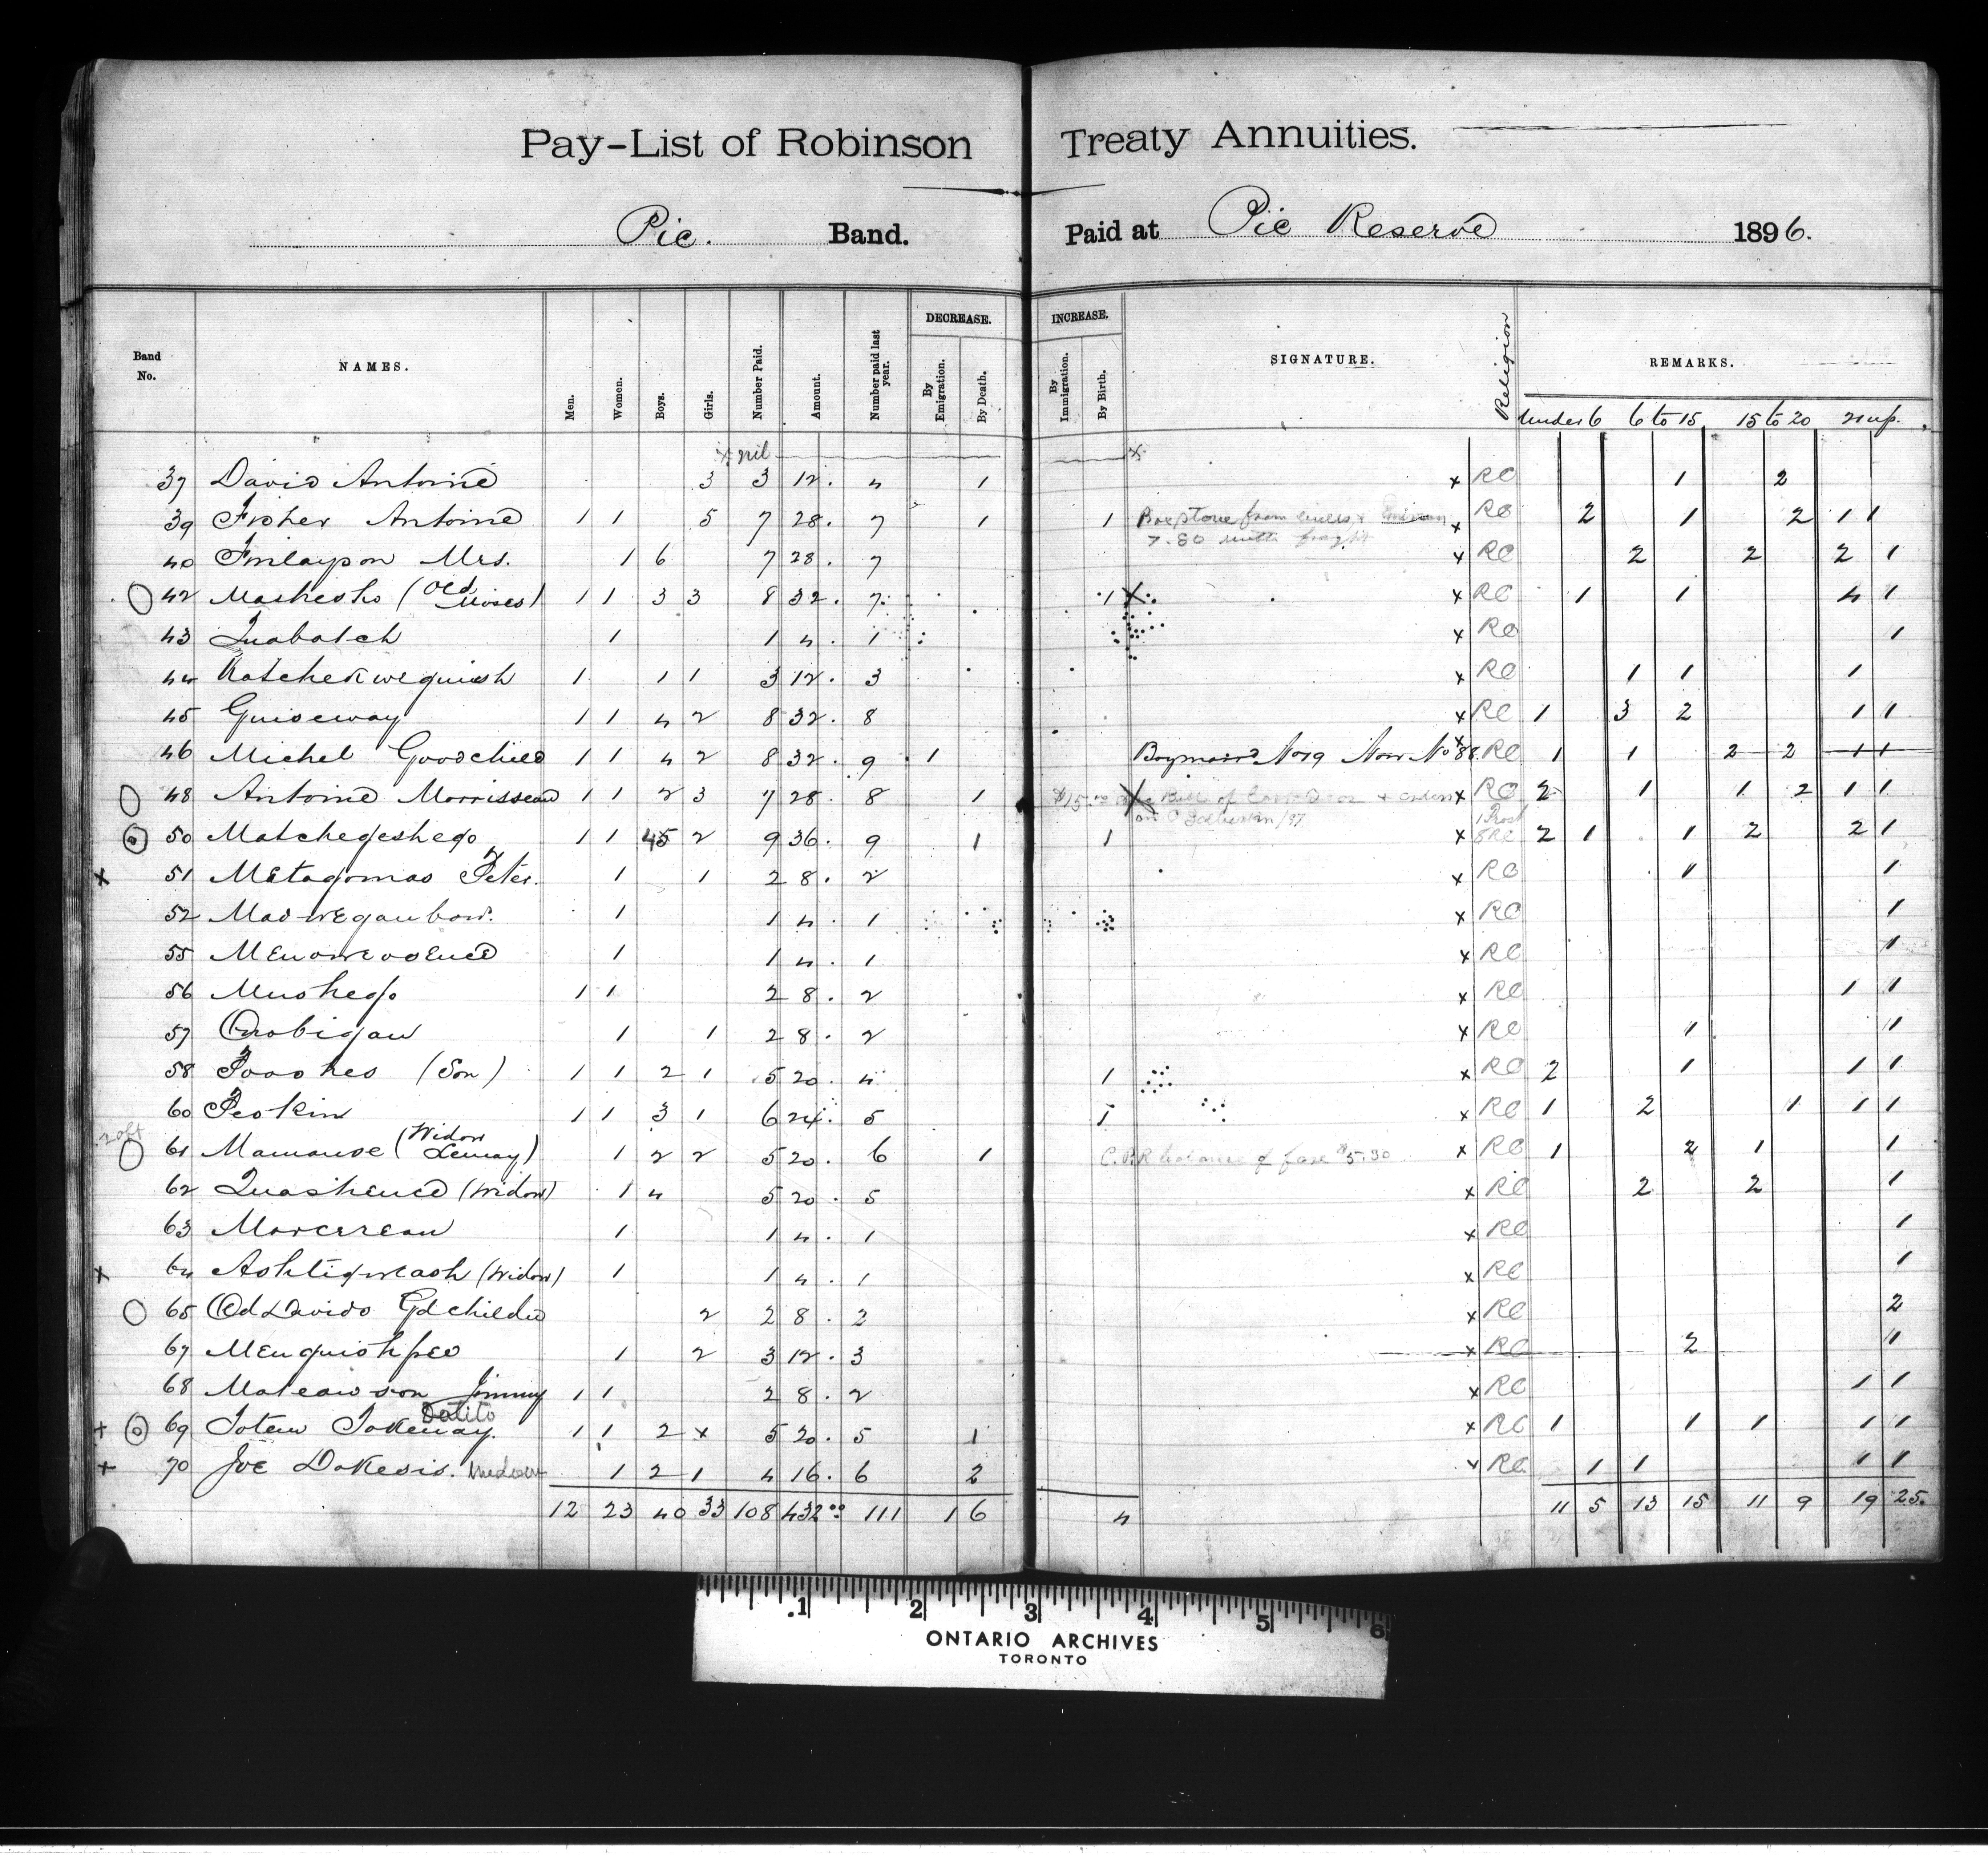 Pay-List of Robinson Treaty Annuities.
Pic. Band. Paid at Pic Reserve 1896.
Band No. NAMES. Men. Women. Boys. Girls. Number Paid. Amount. Number paid last year. DECREASE. By Emigration. By Death. INCREASE. By Immigration. By Birth. SIGNATURE. Religion REMARKS.
Under 6 6 to 15 15 to 20 21 up.
x nil x
37 David Antoine 3 3 12. 4 1 x RC 1 2
39 Fisher Antoine 1 1 5 7 28. 7 1 1 from x RC 2 1 2 1 1
7.80 with
40 Finlayson Mrs. 1 6 7 28. 7 x RC 2 2 2 1
42 Mashesho (Old Moses) 1 1 3 3 8 32. 7 1 X x RC 1 1 4 1
43 Quabatch 1 1 4. 1 x RC 1
44 1 1 1 3 12. 3 x RC 1 1 1
45 Guiseway 1 1 4 2 8 32. 8 x RC 1 3 2 1 1
46 Michel Goodchild 1 1 4 2 8 32. 9 1 No 9 Now No 88 x RC 1 1 2 2 1 1
48 Antoine Morrisseau 1 1 2 3 7 28. 8 1 $15.00 Bill of x RC 2 1 1 2 1 1
50 Matchegeshego 1 1 5 2 9 36. 9 1 1 x 1 Prot 8 RC 2 1 1 2 2 1
x 51 Metagomas Peter. 1 1 2 8. 2 x RC 1 1
52 Madwegaubow. 1 1 4. 1 x RC 1
55 1 1 4. 1 x RC 1
56 Mushego 1 1 2 8. 2 x RC 1 1
57 Onabigau 1 1 2 8. 2 x RC 1 1
58 (Son) 1 1 2 1 5 20. 4 1 x RC 2 1 1 1
60 Peskin 1 1 3 1 6 24. 5 1 x RC 1 2 1 1 1
61 (Widow Lemay) 1 2 2 5 20. 6 1 C.P.R balance of fare $5.30 x RC 1 2 1 1
62 Quashence (Widow) 1 4 5 20. 5 x RC 2 2 1
63 Morcereau 1 1 4. 1 x RC 1
x 64 Ashtigweash (Widow) 1 1 4. 1 x RC 1
65 Old Davids Gdchildre 2 2 8. 2 x RC 2
67 Menquishpeo 1 2 3 12. 3 x RC 2 1
68 Jimmy 1 1 2 8. 2 x RC 1 1
+ 69 Totem Tokenay. 1 1 2 x 5 20. 5 1 x RC 1 1 1 1 1
+ 70 Joe Dakesis. Widow 1 2 1 4 16. 6 2 x RC 1 1 1 1
12 23 40 33 108 432.00 111 1 6 4 11 5 13 15 11 9 19 25.
.1 2 3 4 5 6
ONTARIO ARCHIVES
TORONTO